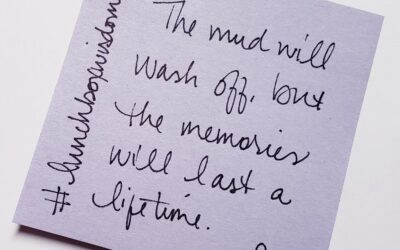 The mud will
wash off, but
the memories
will last a
lifetime.
#lunchboxwisdom